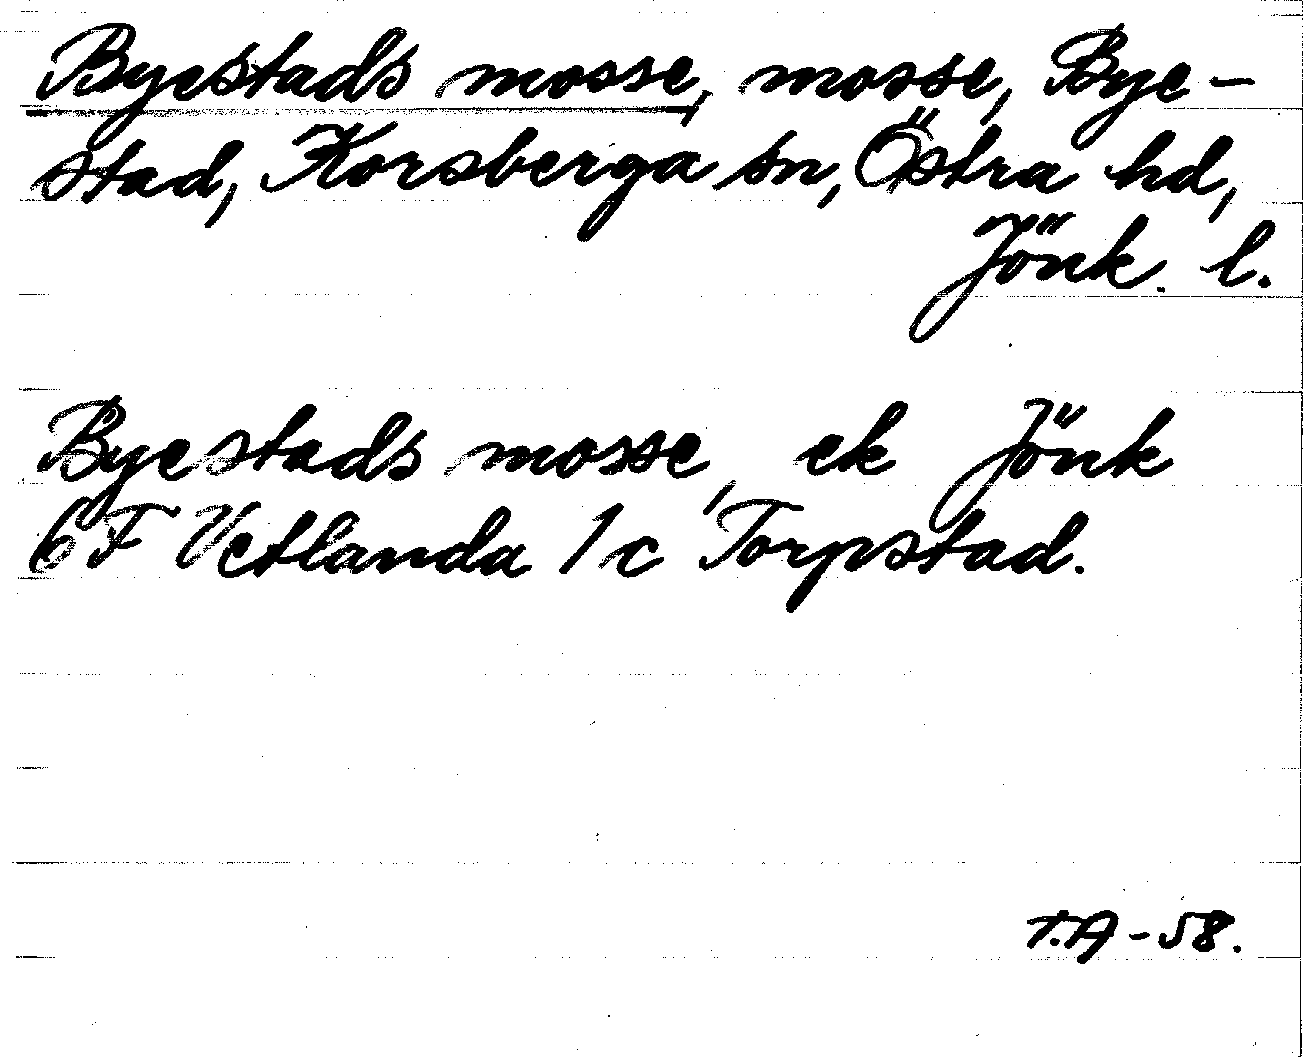 Byestads mosse, mosse, Bye-
stad, Korsberga sn, Östra hd,
Jönk. l.
Byestads mosse, ek Jönk
6F Vetlanda 1c Torpstad.
T.A - 58.